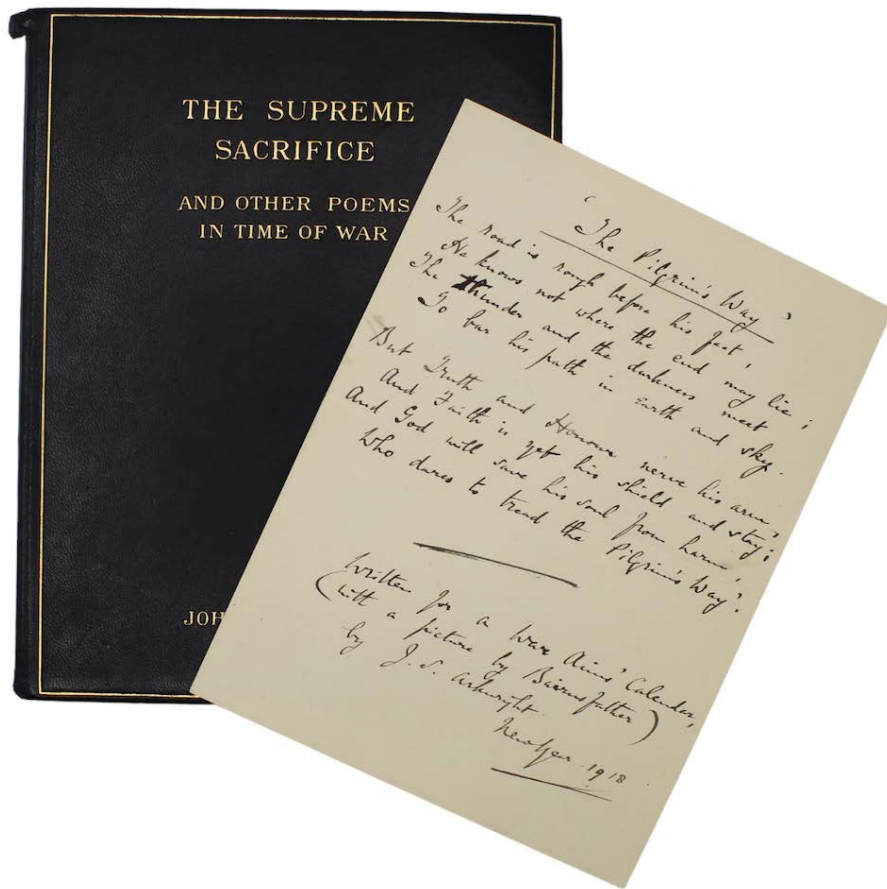 THE SUPREME
SACRIFICE
AND OTHER POEMS
IN TIME OF WAR
JOH
'The Pilgrim's Way'
The road is rough before his feet,
He knows not where the end may lie;
The thunder and the darkness meet
To bar his path in Earth and sky.
But Truth and Honour nerve his arm,
And Faith is yet his shield and stay;
And God will save his soul from harm
Who dares to tread the Pilgrim's Way.
Written for a War Aims' Calendar,
(with a picture by Bairnsfather)
by J. S. Arkwright.
New Year. 1918